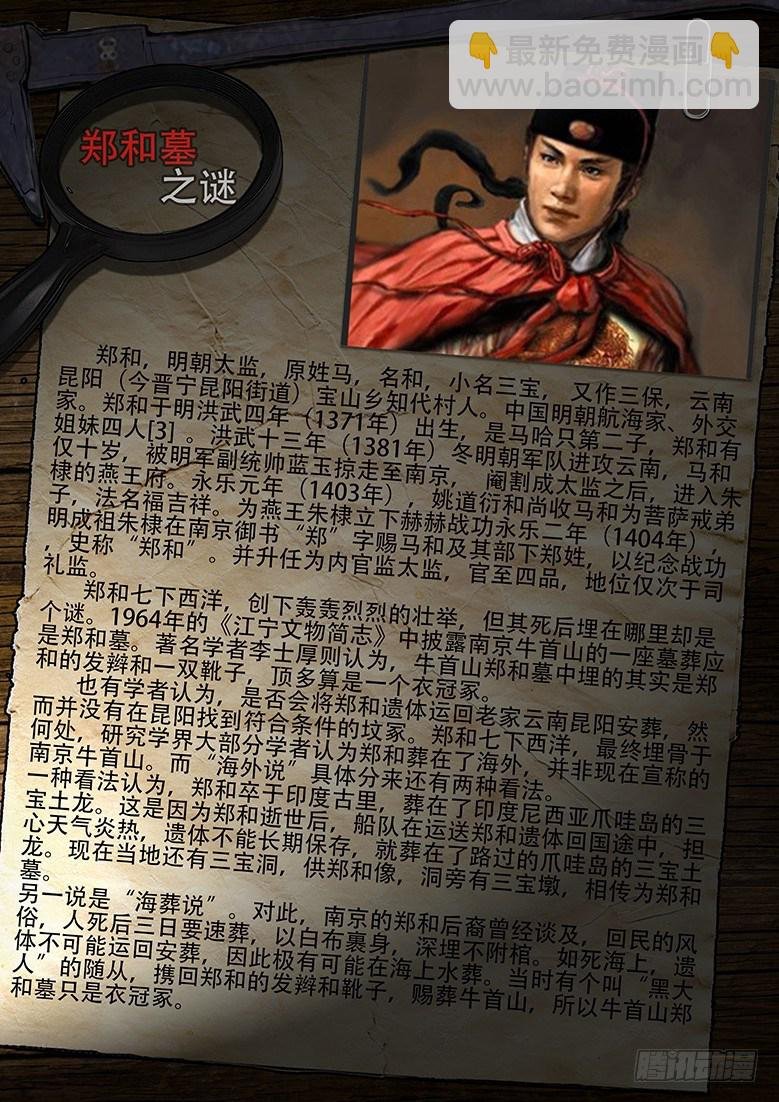 最新免费漫画
www.baozimh.com
郑和墓
之谜
郑和，明朝太监，原姓马，名和，小名三宝，又作三保，云南
昆阳（今晋宁昆阳街道）宝山乡知代村人。中国明朝航海家、外交
家。郑和于明洪武四年（1371年）出生，是马哈只第二子，郑和有
姐妹四人[3] 。洪武十三年（1381年）冬明朝军队进攻云南，马和
仅十岁，被明军副统帅蓝玉掠走至南京， 阉割成太监之后，进入朱
棣的燕王府。永乐元年（1403年），姚道衍和尚收马和为菩萨戒弟
子，法名福吉祥。为燕王朱棣立下赫赫战功永乐二年（1404年），
明成祖朱棣在南京御书“郑”字赐马和及其部下郑姓，以纪念战功
，史称“郑和”。并升任为内官监太监，官至四品，地位仅次于司
礼监。
郑和七下西洋，创下轰轰烈烈的壮举，但其死后埋在哪里却是
个谜。1964年的《江宁文物简志》中披露南京牛首山的一座墓葬应
是郑和墓。著名学者李士厚则认为，牛首山郑和墓中埋的其实是郑
和的发辫和一双靴子，顶多算是一个衣冠冢。
也有学者认为，是否会将郑和遗体运回老家云南昆阳安葬，然
而并没有在昆阳找到符合条件的坟冢。郑和七下西洋，最终埋骨于
何处，研究学界大部分学者认为郑和葬在了海外，并非现在宣称的
南京牛首山。而“海外说”具体分来还有两种看法。
一种看法认为，郑和卒于印度古里，葬在了印度尼西亚爪哇岛的三
宝土龙。这是因为郑和逝世后，船队在运送郑和遗体回国途中，担
心天气炎热，遗体不能长期保存，就葬在了路过的爪哇岛的三宝土
龙。现在当地还有三宝洞，供郑和像，洞旁有三宝墩，相传为郑和
墓。
另一说是“海葬说”。对此，南京的郑和后裔曾经谈及，回民的风
俗，人死后三日要速葬，以白布裹身，深埋不附棺。如死海上，遗
体不可能运回安葬，因此极有可能在海上水葬。当时有个叫“黑大
人”的随从，携回郑和的发辫和靴子，赐葬牛首山，所以牛首山郑
和墓只是衣冠冢。
腾讯动漫